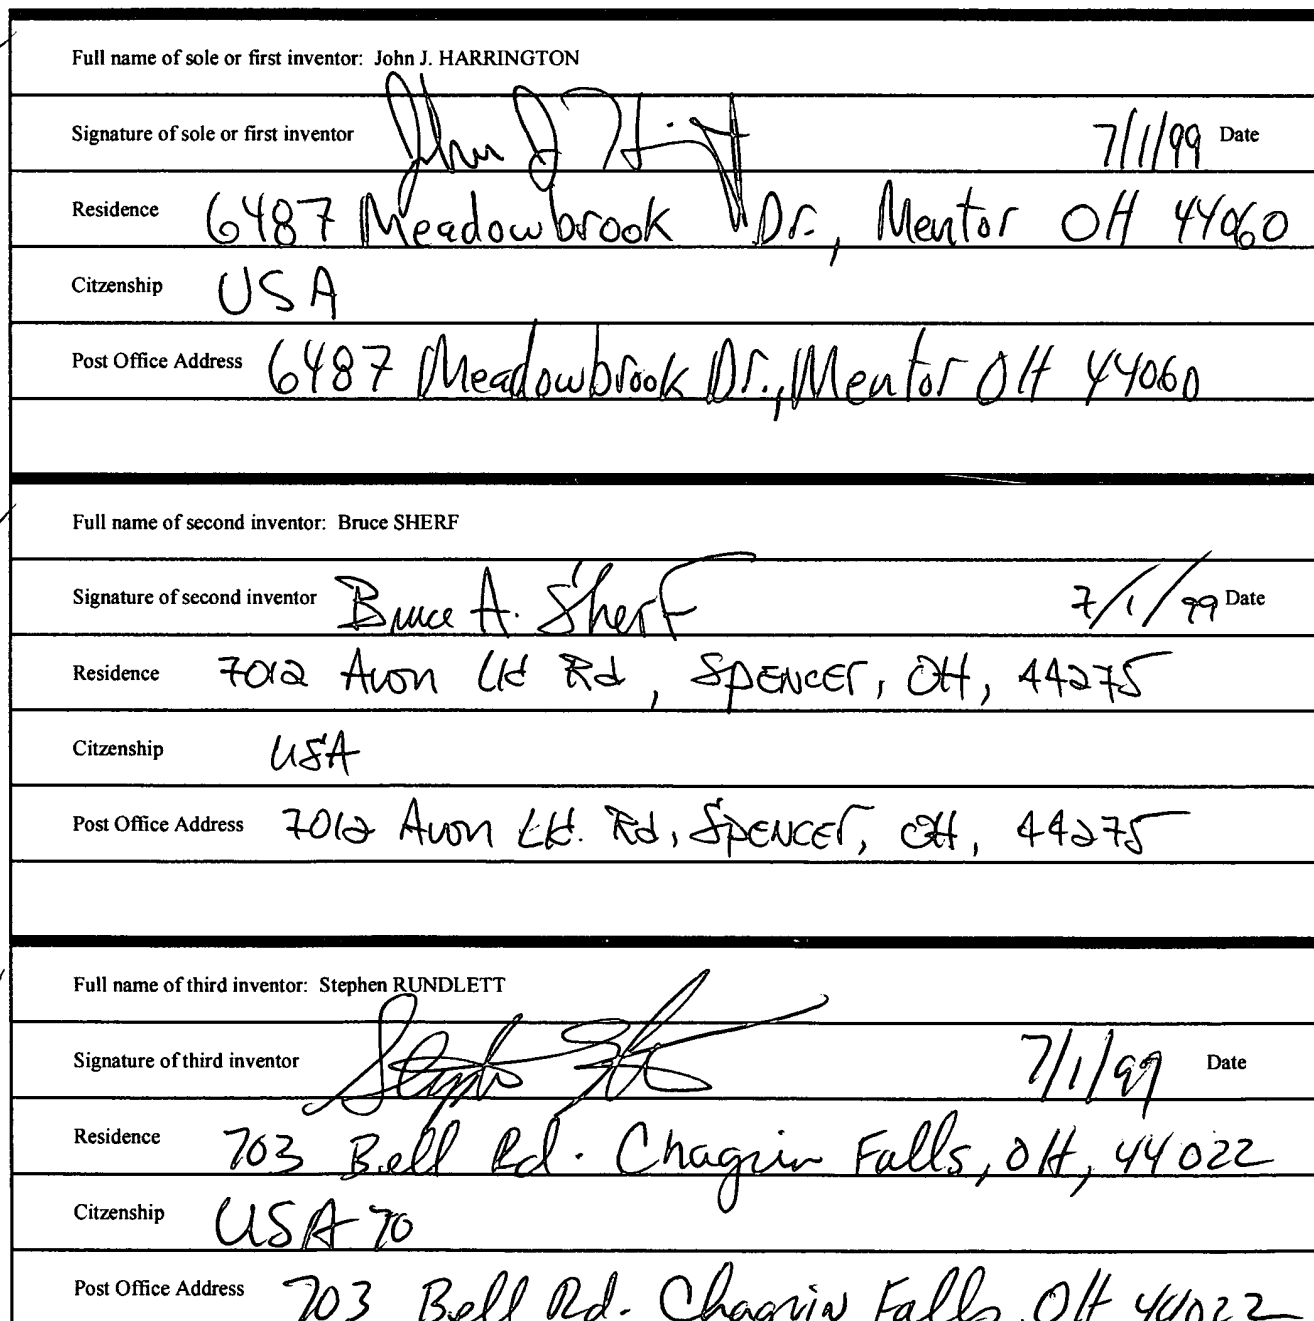 Full name of sole or first inventor: John J. HARRINGTON
Signature of sole or first inventor John J 7/1/99 Date
Residence 6487 Meadowbrook Dr., Mentor OH 44060
Citzenship USA
Post Office Address 6487 Meadowbrook Dr., Mentor OH 44060
Full name of second inventor: Bruce SHERF
Signature of second inventor Bruce A. Sherf 7/1/99 Date
Residence 7012 Avon Lk Rd, SPENCEr, OH, 44275
Citzenship USA
Post Office Address 7012 Avon Lk. Rd, SPENCEr, OH, 44275
Full name of third inventor: Stephen RUNDLETT
Signature of third inventor 7/1/99 Date
Residence 703 Bell Rd. Chagrin Falls, OH, 44022
Citzenship USA 70
Post Office Address 703 Bell Rd. Chagrin Falls, OH 44022